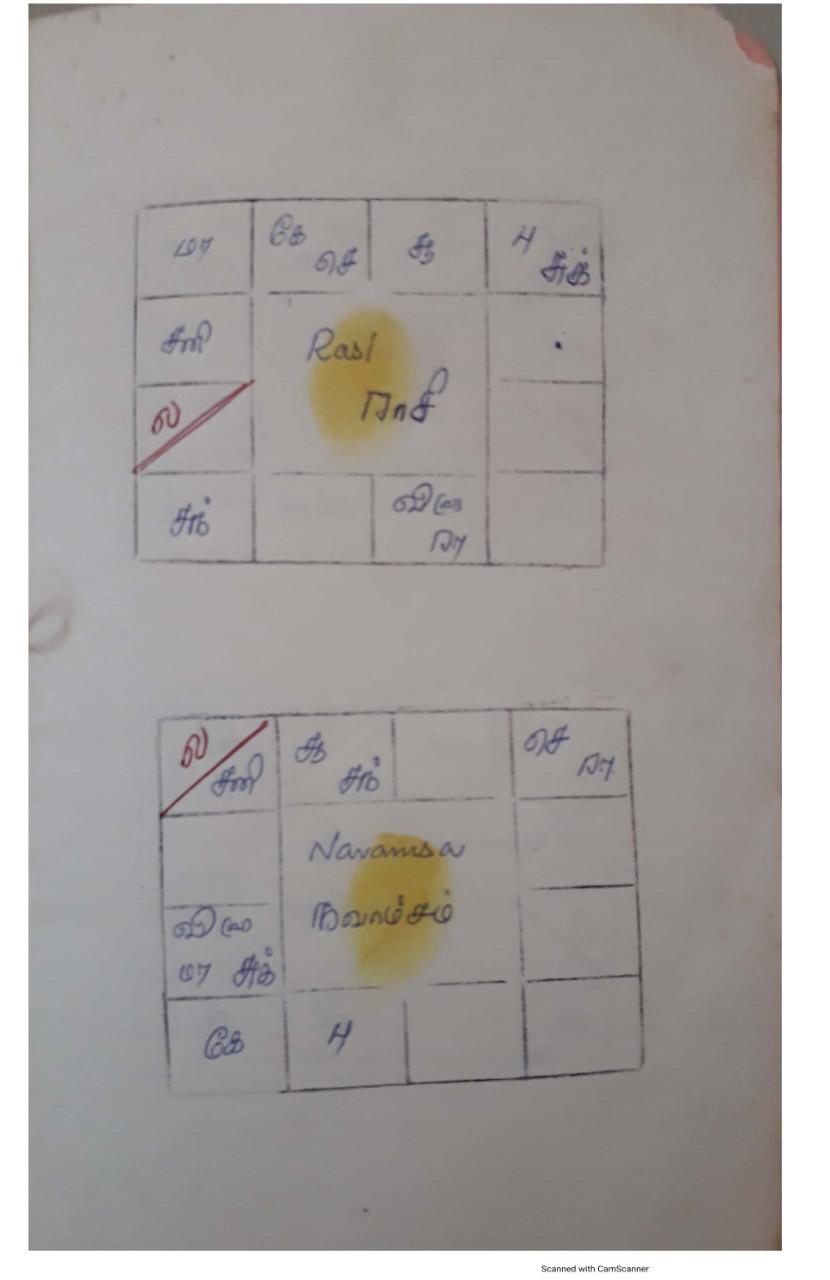 மா
கே
செ
சூ
பு
சுக்
சனி
Rasi
ராசி
ல
சந்
வியா
ரா
ல
சனி
சூ
சந்
செ
ரா
Navamsa
நவாம்சம்
வியா
மா சுக்
கே
பு
Scanned with CamScanner